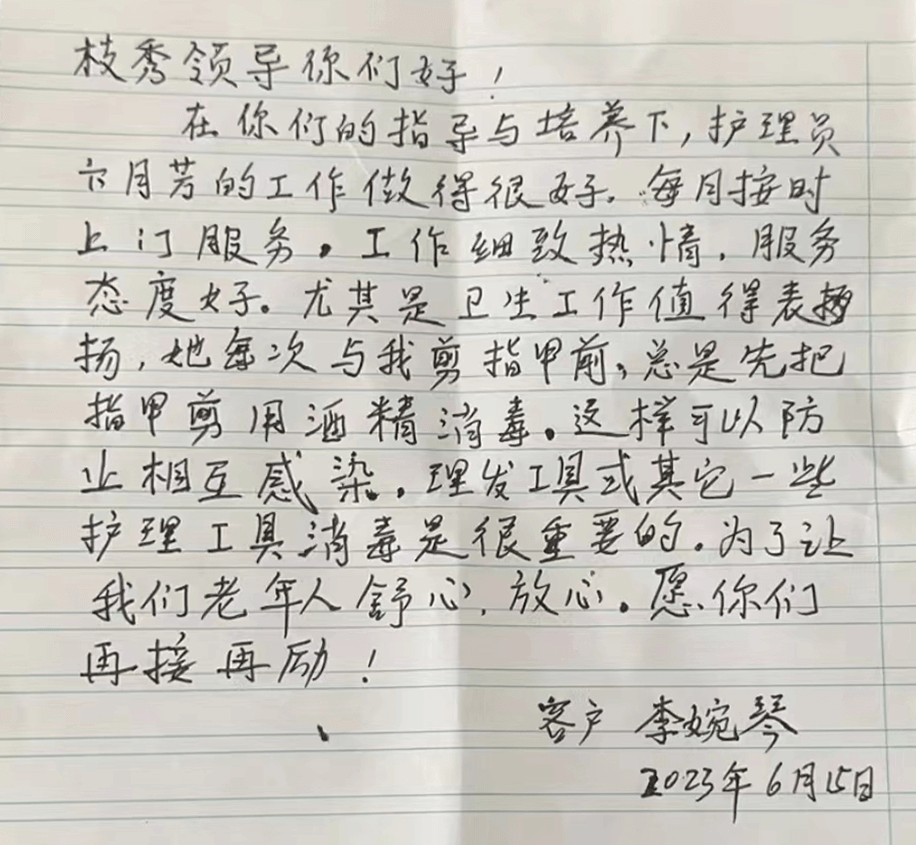 枝秀领导你们好！
在你们的指导与培养下，护理员
卞月芳的工作做得很好。每月按时
上门服务。工作细致热情，服务
态度好。尤其是卫生工作值得表
扬，她每次与我剪指甲前，总是先把
指甲剪用酒精消毒。这样可以防
止相互感染。理发工具或其它一些
护理工具消毒是很重要的。为了让
我们老年人舒心，放心。愿你们
再接再励！
客户 李婉琴
2023年6月15日